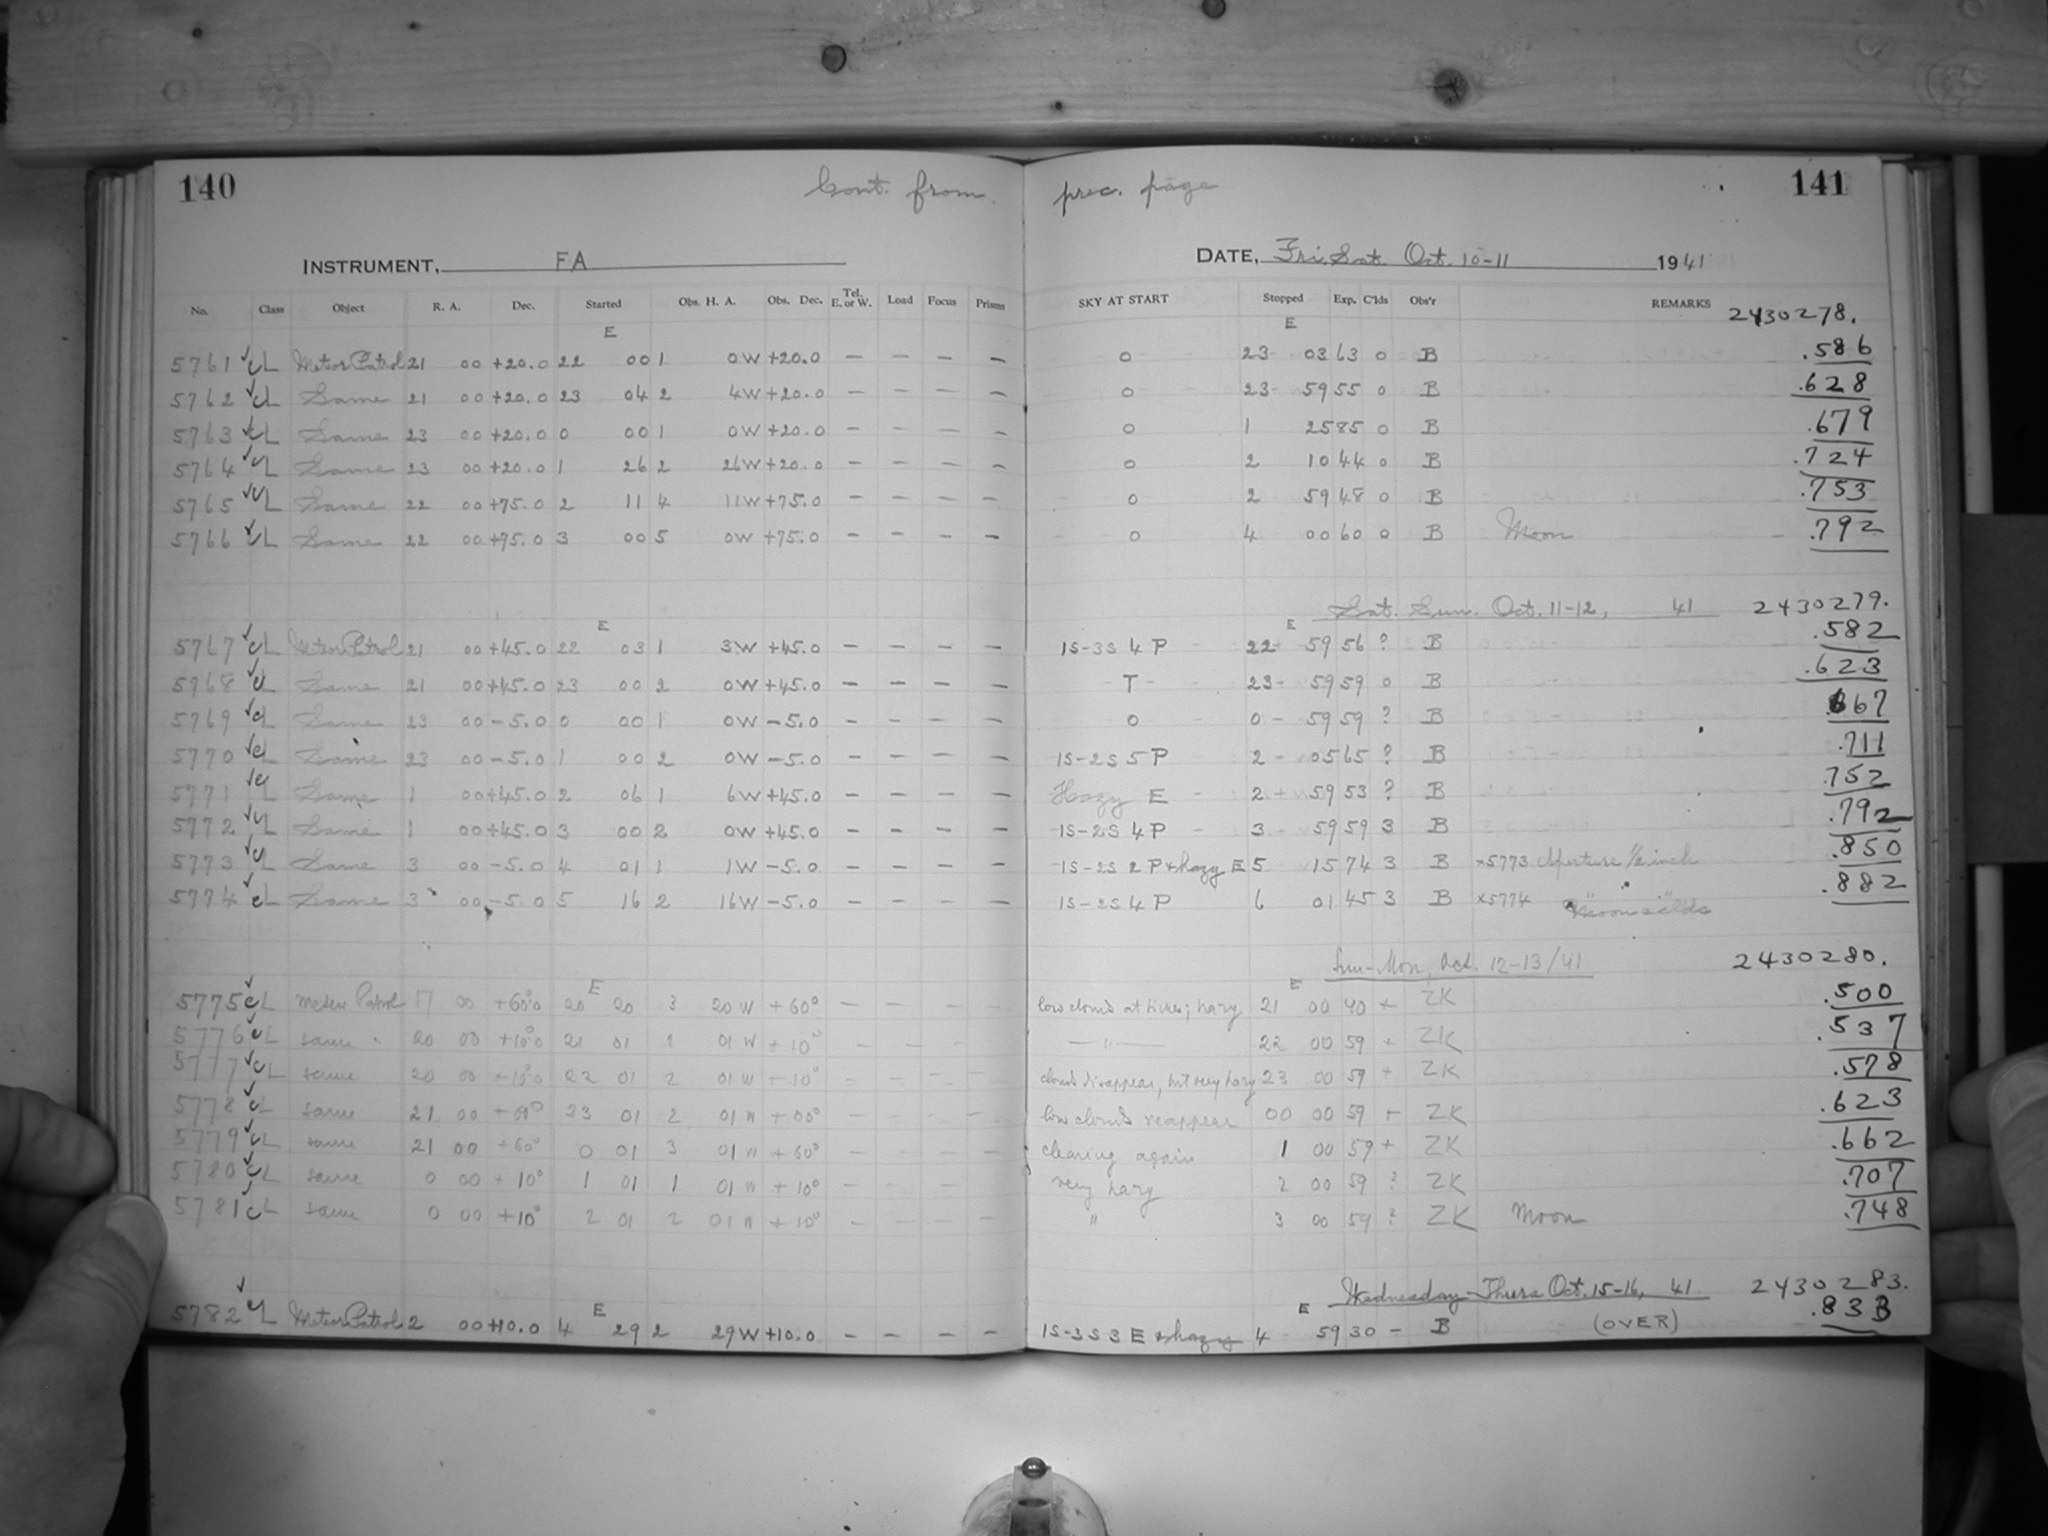 140
Cont. from prec. page
141
INSTRUMENT, FA
DATE, Fri. Sat. Oct. 10-11 1941
No. Class Object R. A. Dec. Started Obs. H. A. Obs. Dec. Tel. E. or W. Load Focus Prisms SKY AT START Stopped Exp. C'lds Obs'r REMARKS
2430278.
E E
5761 cL Meteor Patrol 21 00 +20.0 22 00 1 0W +20.0 – – – – 0 23 03 63 0 B .586
5762 cL Same 21 00 +20.0 23 04 2 4W +20.0 – – – – 0 23 59 55 0 B .628
5763 cL Same 23 00 +20.0 0 00 1 0W +20.0 – – – – 0 1 25 85 0 B .679
5764 cL Same 23 00 +20.0 1 26 2 26W +20.0 – – – – 0 2 10 44 0 B .724
5765 cL Same 22 00 +75.0 2 11 4 11W +75.0 – – – – 0 2 59 48 0 B .753
5766 cL Same 22 00 +75.0 3 00 5 0W +75.0 – – – – 0 4 00 60 0 B Moon .792
Sat. Sun. Oct. 11-12, 41 2430279.
E E
5767 cL Meteor Patrol 21 00 +45.0 22 03 1 3W +45.0 – – – – 1S-3S 4 P 22 59 56 ? B .582
5768 cL Same 21 00 +45.0 23 00 2 0W +45.0 – – – – T 23 59 59 0 B .623
5769 cL Same 23 00 -5.0 0 00 1 0W -5.0 – – – – 0 0 59 59 ? B .667
5770 cL Same 23 00 -5.0 1 00 2 0W -5.0 – – – – 1S-2S 5 P 2 05 65 ? B .711
5771 cL Same 1 00 +45.0 2 06 1 6W +45.0 – – – – Hazy E 2 59 53 ? B .752
5772 cL Same 1 00 +45.0 3 00 2 0W +45.0 – – – – 1S-2S 4 P 3 59 59 3 B .792
5773 cL Same 3 00 -5.0 4 01 1 1W -5.0 – – – – 1S-2S 2 P + hazy E 5 15 74 3 B x5773 Aperture 1/2 inch .850
5774 cL Same 3 00 -5.0 5 16 2 16W -5.0 – – – – 1S-2S 4 P 6 01 45 3 B x5774 Moon .882
Sun-Mon, Oct. 12-13/41 2430280.
E E
5775 cL meteor Patrol 17 00 +60° 20 20 3 20 W +60° – – – – low clouds at times; hazy 21 00 40 + ZK .500
5776 cL same 20 00 +10° 21 01 1 01 W +10° – – – – — " — 22 00 59 + ZK .537
5777 cL same 20 00 +10° 22 01 2 01 W +10° – – – – clouds disappear, but very hazy 23 00 59 + ZK .578
5778 cL same 21 00 +60° 23 01 2 01 W +60° – – – – low clouds reappear 00 00 59 + ZK .623
5779 cL same 21 00 +60° 0 01 3 01 W +60° – – – – clearing again 1 00 59 + ZK .662
5780 cL same 0 00 +10° 1 01 1 01 W +10° – – – – very hazy 2 00 59 ? ZK .707
5781 cL same 0 00 +10° 2 01 2 01 W +10° – – – – " 3 00 59 ? ZK Moon .748
Wednesday-Thurs Oct. 15-16, 41. 2430283.
E E
5782 cL Meteor Patrol 2 00 +10.0 4 29 2 29W +10.0 – – – – 1S-3S 3 E + hazy 4 59 30 – B (OVER) .83B